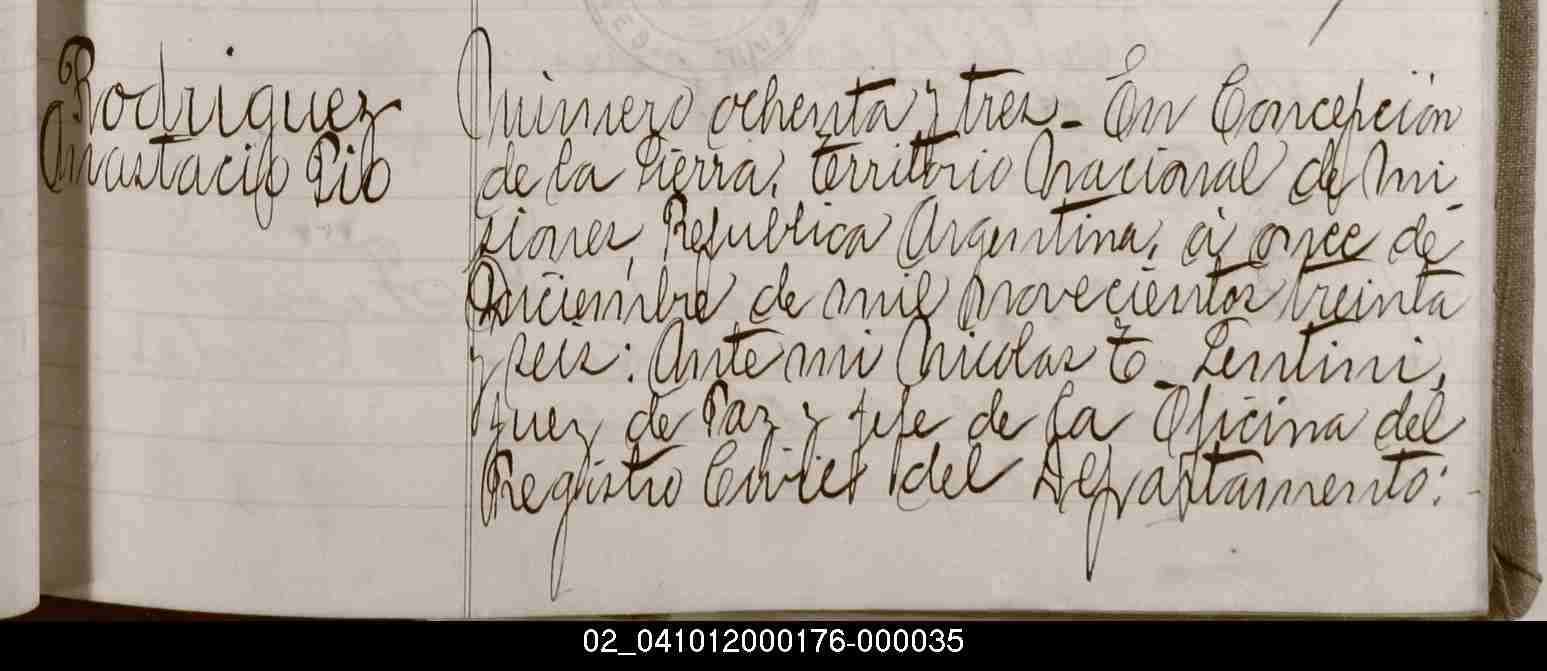 Rodriguez
Anastacio Pio
Número ochenta y tres - En Concepción
de la Sierra, Territorio Nacional de Mi
siones, Republica Argentina, á once de
Diciembre de mil novecientos treinta
y seis: Ante mi Nicolas T. Lentini,
Juez de Paz y Jefe de la Oficina del
Registro Civil del Departamento:
02_041012000176-000035